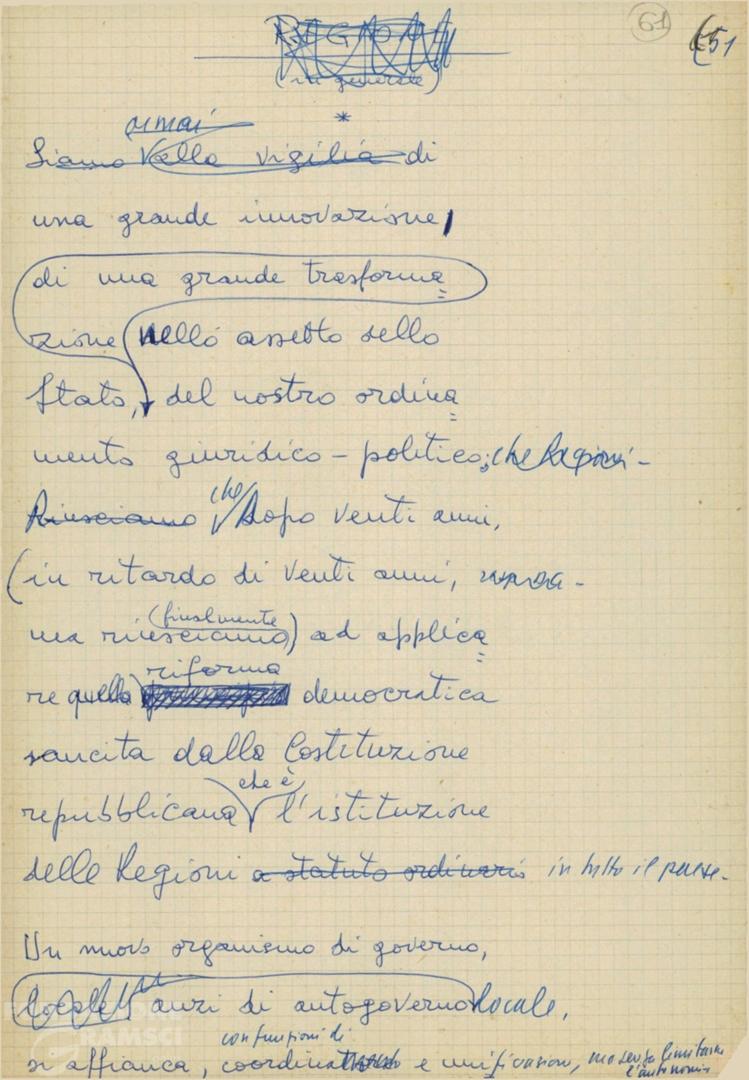 61
51
REGIONI
(in generale)
*
ormai
Siamo alla vigilia di
una grande innovazione,
di una grande trasforma
zione nello assetto dello
Stato, del nostro ordina
mento giuridico-politico; che
Riusciamo che dopo venti anni,
(in ritardo di venti anni,
ma riusciamo (finalmente) ad applica
re quella riforma democratica
sancita dalla Costituzione
repubblicana che è l'istituzione
delle Regioni a statuto ordinario in tutto il paese.
Un nuovo organismo di governo,
locale, anzi di autogoverno locale,
con funzioni di
si affianca, e unificazioni, ma senza limitarne
l'autonomia